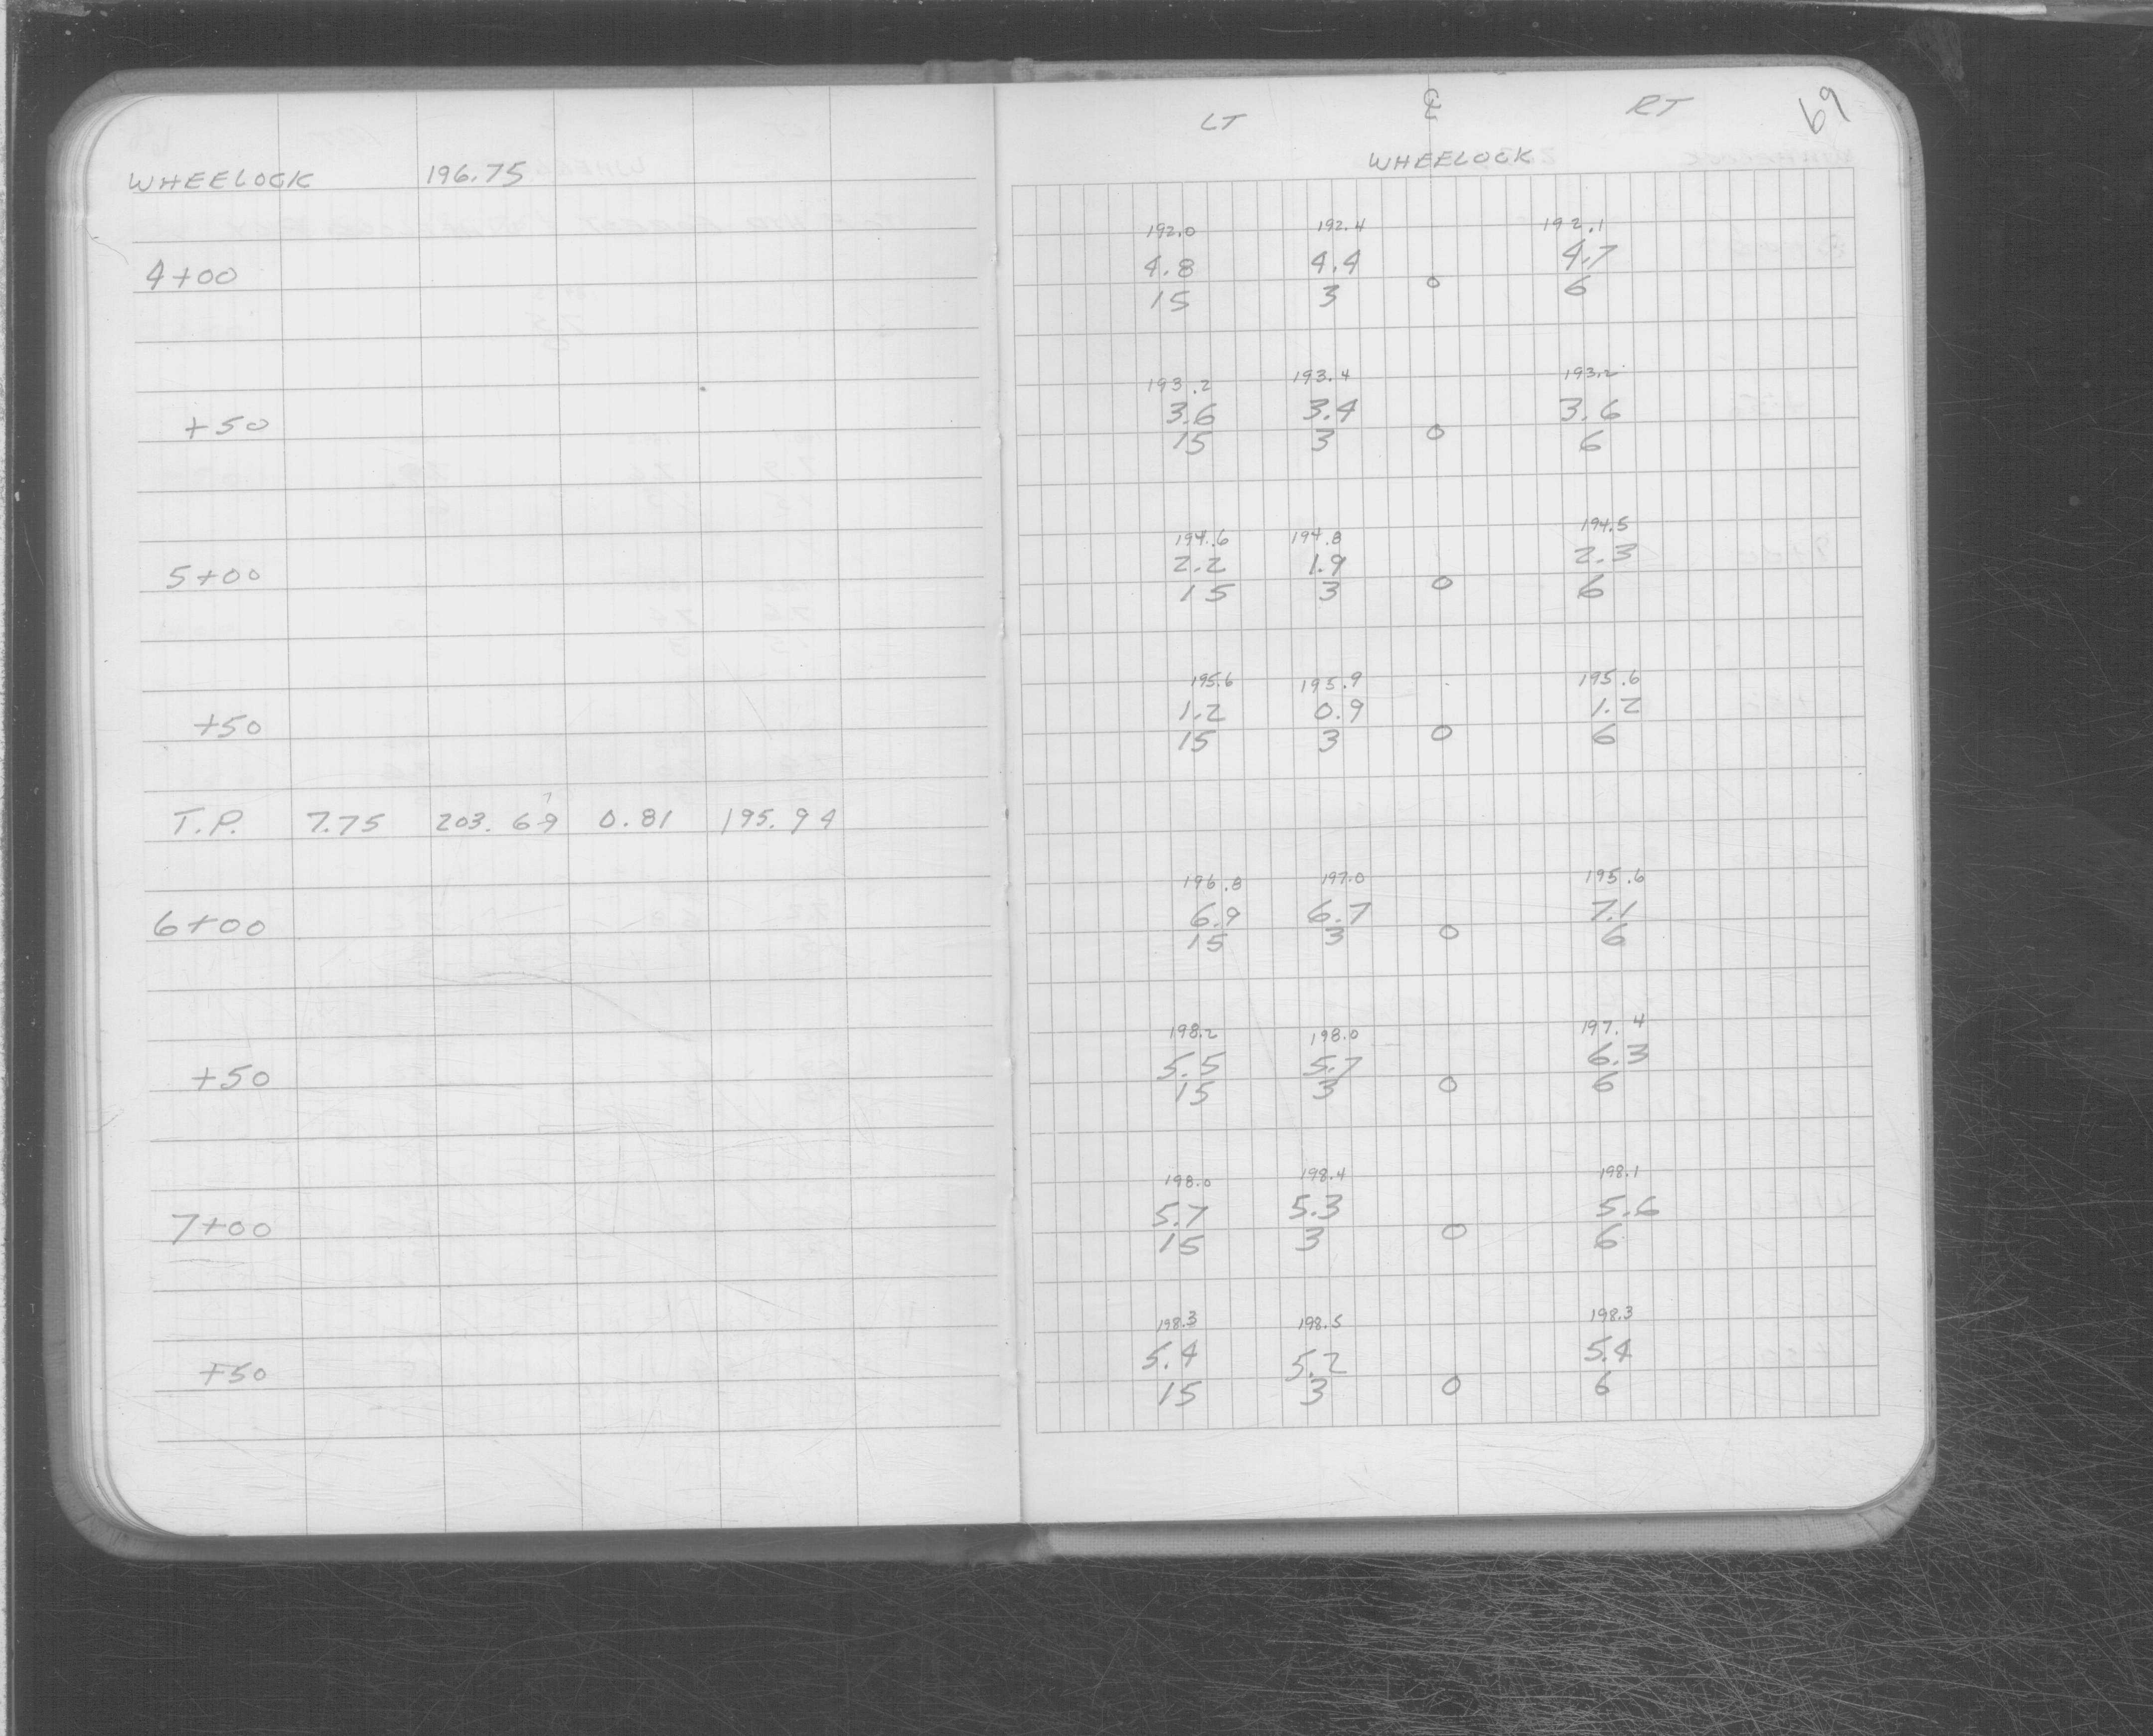 WHEELOCK 196.75
4+00
+50
5+00
+50
7
T.P. 7.75 203.69 0.81 195.94
6+00
+50
7+00
+50
LT ℄ RT 69
WHEELOCK
192.0 192.4 192.1
4.8 4.4 4.7
15 3 0 6
193.2 193.4 193.2
3.6 3.4 3.6
15 3 0 6
194.6 194.8 194.5
2.2 1.9 2.3
15 3 0 6
195.6 195.9 195.6
1.2 0.9 1.2
15 3 0 6
196.8 197.0 195.6
6.9 6.7 7.1
15 3 0 6
198.2 198.0 197.4
5.5 5.7 6.3
15 3 0 6
198.0 198.4 198.1
5.7 5.3 5.6
15 3 0 6
198.3 198.5 198.3
5.4 5.2 5.4
15 3 0 6